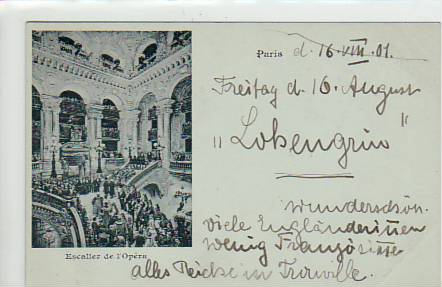 Paris d. 16.VIII.01.
Freitag d. 16. August
"Lohengrin"
wunderschön.
viele Engländerinnen
wenig Französinnen
alles Reiche in Trouville.
Escalier de l'Opéra